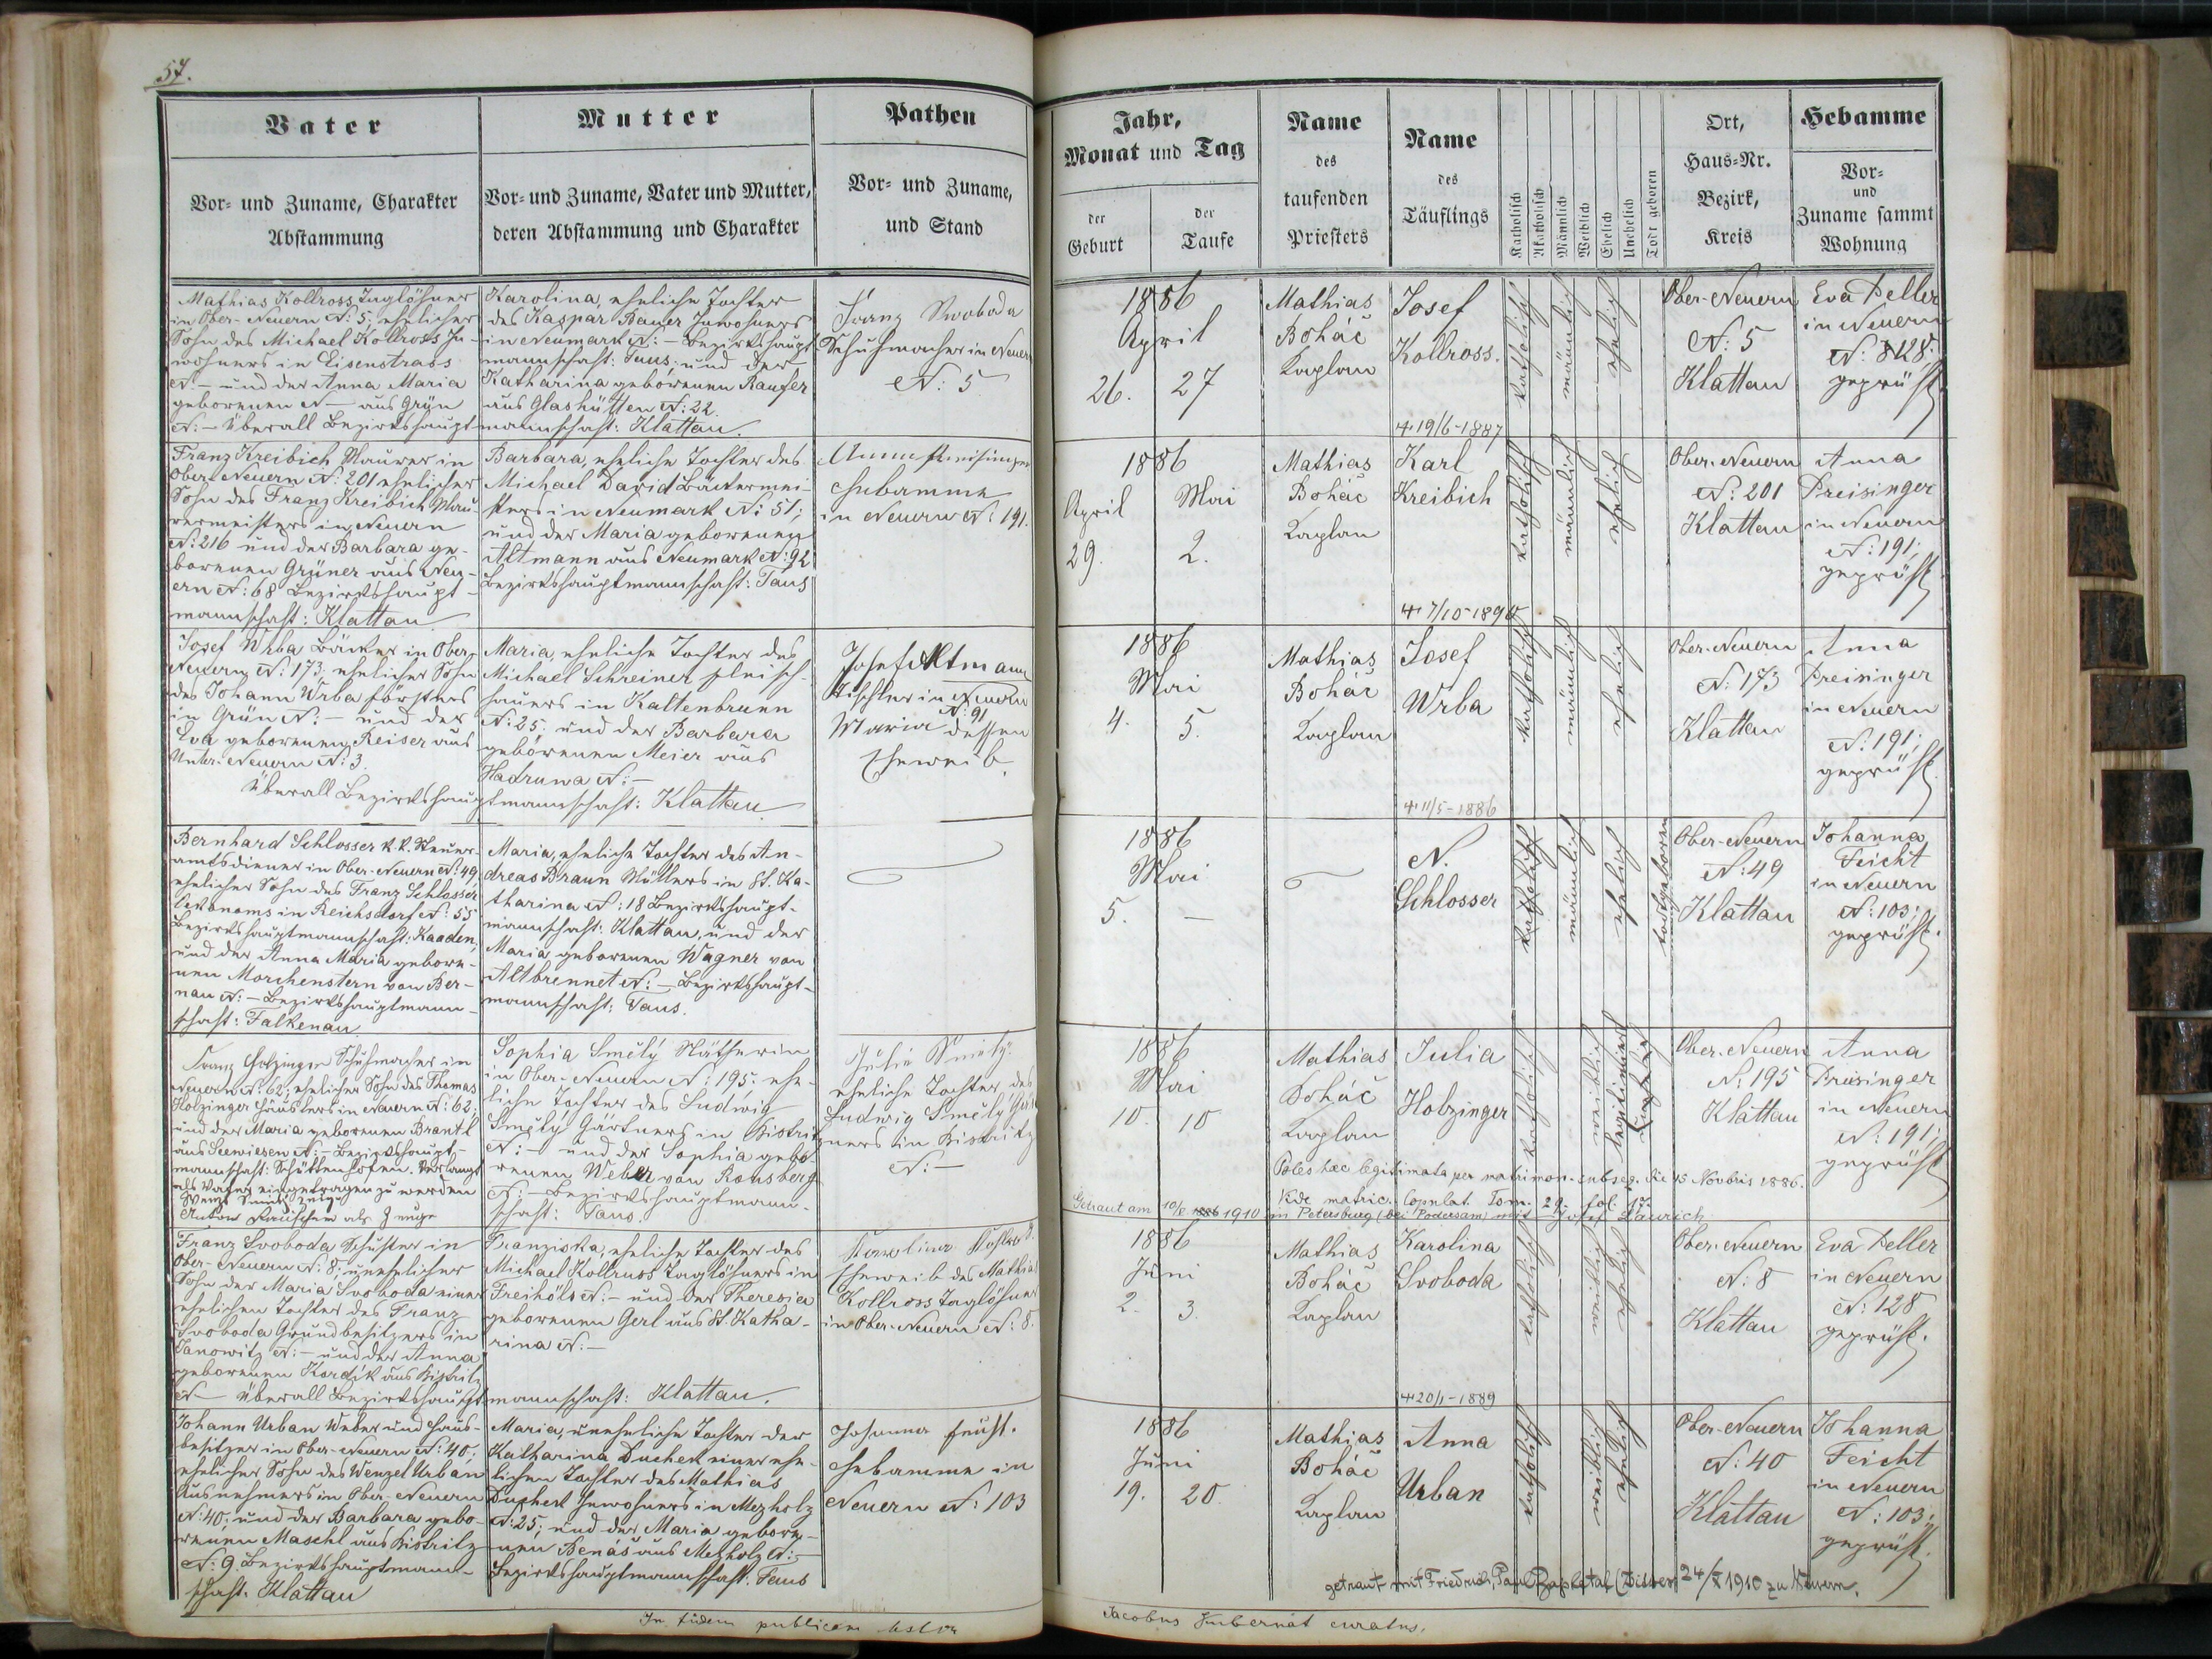 57.
Vater
Vor- und Zuname, Charakter
Abstammung
Mutter
Vor- und Zuname, Vater und Mutter,
deren Abstammung und Charakter
Pathen
Vor- und Zuname,
und Stand
Mathias Kollross, Taglöhner
in Ober-Neuern N: 5, ehelicher
Sohn des Michael Kollross In-
wohners in Eisenstrass
N: – und der Anna Maria
geborenen N – aus Grün
N: – Überall Bezirkshaupt-
Karolina, eheliche Tochter
des Kaspar Bauer Inwohners
in Neumark N: – Bezirkshaupt-
mannschaft: Taus, und der
Katharina geborenen Raufer
aus Glashütten N: 22.
mannschaft: Klattau.
Franz Swoboda
Schuhmacher in Neuern
N: 5
Franz Kreibich Maurer in
Ober-Neuern N: 201 ehelicher
Sohn des Franz Kreibich Mau-
rermeisters in Neuern
N: 216 und der Barbara ge-
borenen Grüner aus Neu-
ern N: 68 Bezirkshaupt-
mannschaft: Klattau
Barbara, eheliche Tochter des
Michael David Bäckermei-
sters in Neumark N: 51;
und der Maria geborenen
Altmann aus Neumark N: 92
Bezirkshauptmannschaft: Taus
Anna Preisinger
Hebamme
in Neuern N: 191.
Josef Wrba Bäcker in Ober-
Neuern N: 173, ehelicher Sohn
des Johann Wrba Försters
in Grün N: – und der
Eva geborenen Reiser aus
Unter-Neuern N: 3.
Überall Bezirkshaup
Maria, eheliche Tochter des
Michael Schreiner Fleisch-
hauers in Kaltenbrunn
N: 25. und der Barbara
geborenen Meier aus
Hadruwa N: –
tmannschaft: Klattau
Josef Altmann
Tischler in Neuern
N: 91
Maria dessen
Eheweib.
Bernhard Schlosser k. k. Steuer-
amtsdiener in Ober-Neuern N: 49.
ehelicher Sohn des Franz Schlosser
Oekonoms in Reichsdorf N: 55
Bezirkshauptmannschaft: Kaaden,
und der Anna Maria gebore-
nen Morchenstern von Ber-
nau N: – Bezirkshauptmann-
schaft: Falkenau
Maria, eheliche Tochter des An-
dreas Braun Müllers in St. Ka-
tharina N: 18 Bezirkshaupt-
mannschaft: Klattau, und der
Maria geborenen Wagner von
Altbrennet N: – Bezirkshaupt-
mannschaft: Taus.
Franz Holzinger Schuhmacher in
Neuern N: 62; ehelicher Sohn des Thomas
Holzinger Häuslers in Neuern N: 62;
und der Maria geborenen Brantl
aus Seewiesen N: – Bezirkshaupt-
mannschaft: Schüttenhofen. Verlangt
als Vater eingetragen zu werden
Anton Rauscher als Zeuge
Sophia Smělý Nätherin
in Ober-Neuern N: 195: ehe-
liche Tochter des Ludwig
Smělý Gärtners in Bistritz
N: – und der Sophia gebo-
renen Weber von Ronsberg
N: – Bezirkshauptmann-
schaft: Taus.
Julie Smělý
eheliche Tochter des
Ludwig Smělý Gärt-
ners in Bistritz
N: –
Franz Svoboda Schuster in
Ober-Neuern N: 8; unehelicher
Sohn der Maria Svoboda einer
ehelichen Tochter des Franz
Svoboda Grundbesitzers in
Janowitz N: – und der Anna
geborenen Kordik aus Bistritz
N – Überall Bezirkshaupt
Franziska, eheliche Tochter des
Michael Kollruss Taglöhners in
Freihöls N: – und der Theresia
geborenen Gerl aus St. Katha-
rina N: –
mannschaft: Klattau.
Karolina
Eheweib des Mathias
Kollross Taglöhner
in Ober-Neuern N: 8.
Johann Urban Weber und Haus-
besitzer in Ober-Neuern N: 40;
ehelicher Sohn des Wenzel Urban
Ausnehmers in Ober-Neuern
N: 40; und der Barbara gebo-
renen Maschl aus Bistritz
N: 9. Bezirkshauptmann-
schaft. Klattau
Maria, uneheliche Tochter der
Katharina Duchek einer ehe-
lichen Tochter des Mathias
Duchek Inwohners in Mezholz
N: 25; und der Maria gebore-
nen Benáš aus Mezholz N: –
Bezirkshauptmannschaft. Taus
Johanna Feicht.
Hebamme in
Neuern N: 103
In fidem publicam
Jahr,
Monat und Tag
der
Geburt
der
Taufe
Name
des
taufenden
Priesters
Name
des
Täuflings
Katholisch
Akatholisch
Männlich
Weiblich
Ehelich
Unehelich
Todt geboren
Ort,
Haus-Nr.
Bezirk,
Kreis
Hebamme
Vor-
und
Zuname sammt
Wohnung
1886
April
26. 27
Mathias
Boháč
Kaplan
Josef
Kollross.
✝ 19/6-1887
katholisch
männlich
ehelich
Ober-Neuern
N: 5
Klattau
Eva Peller
in Neuern
N: 128;
geprüft
1886
April Mai
29. 2.
Mathias
Boháč
Kaplan
Karl
Kreibich
✝ 7/10-1890
katholisch
männlich
ehelich
Ober-Neuern
N: 201
Klattau
Anna
Preisinger
in Neuern
N: 191;
geprüft.
1886
Mai
4. 5.
Mathias
Boháč
Kaplan
Josef
Wrba
✝ 11/5-1886
katholisch
männlich
ehelich
Ober-Neuern
N: 173
Klattau
Anna
Preisinger
in Neuern
N: 191;
geprüft.
1886
Mai
5. –
N.
Schlosser
katholisch
männlich
ehelich
todtgeboren
Ober-Neuern
N: 49
Klattau
Johanna
Feicht
in Neuern
N: 103;
geprüft.
1886
Mai
10. 10
Mathias
Boháč
Kaplan
Julia
Holzinger
katholisch
weiblich
legitimiert
Ober-Neuern
N: 195
Klattau
Anna
Preisinger
in Neuern
N: 191;
geprüft
Proles haec legitimata per matrimon. subseq. die 15 Novbris 1886.
Vide matric. Copulat. Tom. 29. fol. 17.
Getraut am 1910 in Petersburg (bei Podersam) mit Josef
1886
Juni
2. 3.
Mathias
Boháč
Kaplan
Karolina
Svoboda
✝ 20/1-1889
katholisch
weiblich
ehelich
Ober-Neuern
N: 8
Klattau
Eva Peller
in Neuern
N: 128
geprüft.
1886
Juni
19. 20.
Mathias
Boháč
Kaplan
Anna
Urban
katholisch
weiblich
ehelich
Ober-Neuern
N: 40
Klattau
Johanna
Feicht
in Neuern
N: 103;
geprüft.
getraut mit Friedrich, Paul Zapletal 24/X 1910 zu Neuern.
Jacobus Hubernát curatus.